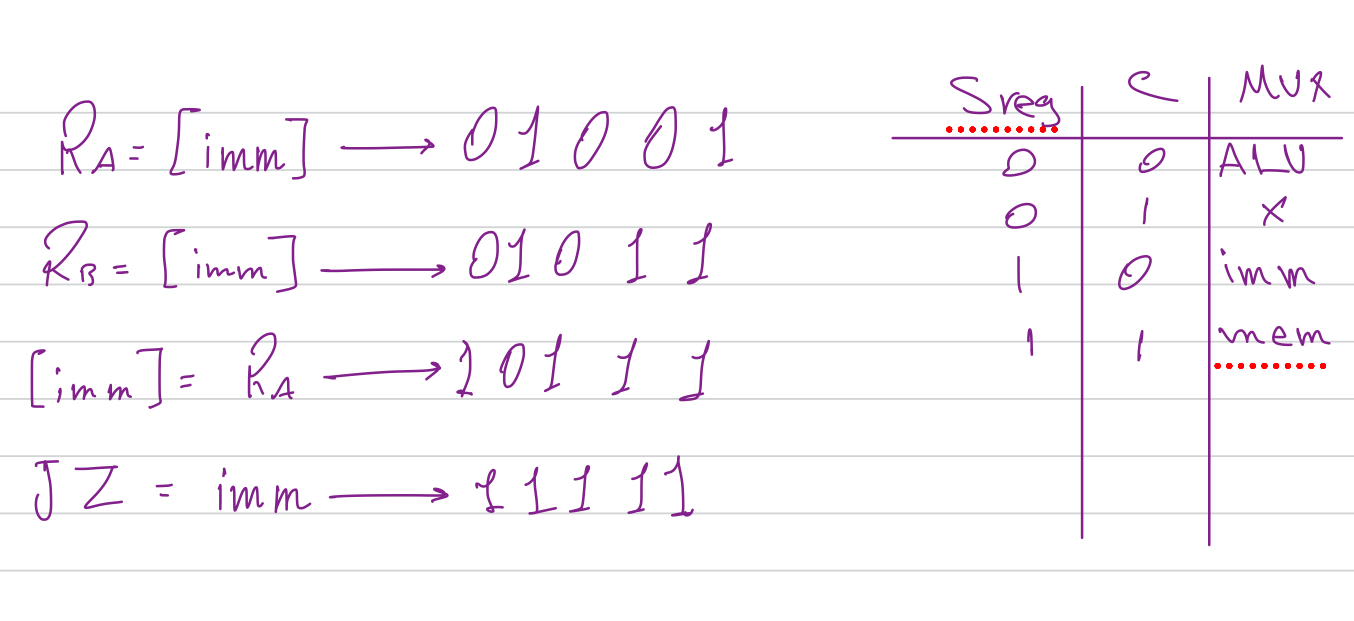 RA = [imm] → 01001
RB = [imm] → 01011
[imm] = RA → 10111
JZ = imm → 11111
Sreg C MUX
0 0 ALU
0 1 x
1 0 imm
1 1 mem